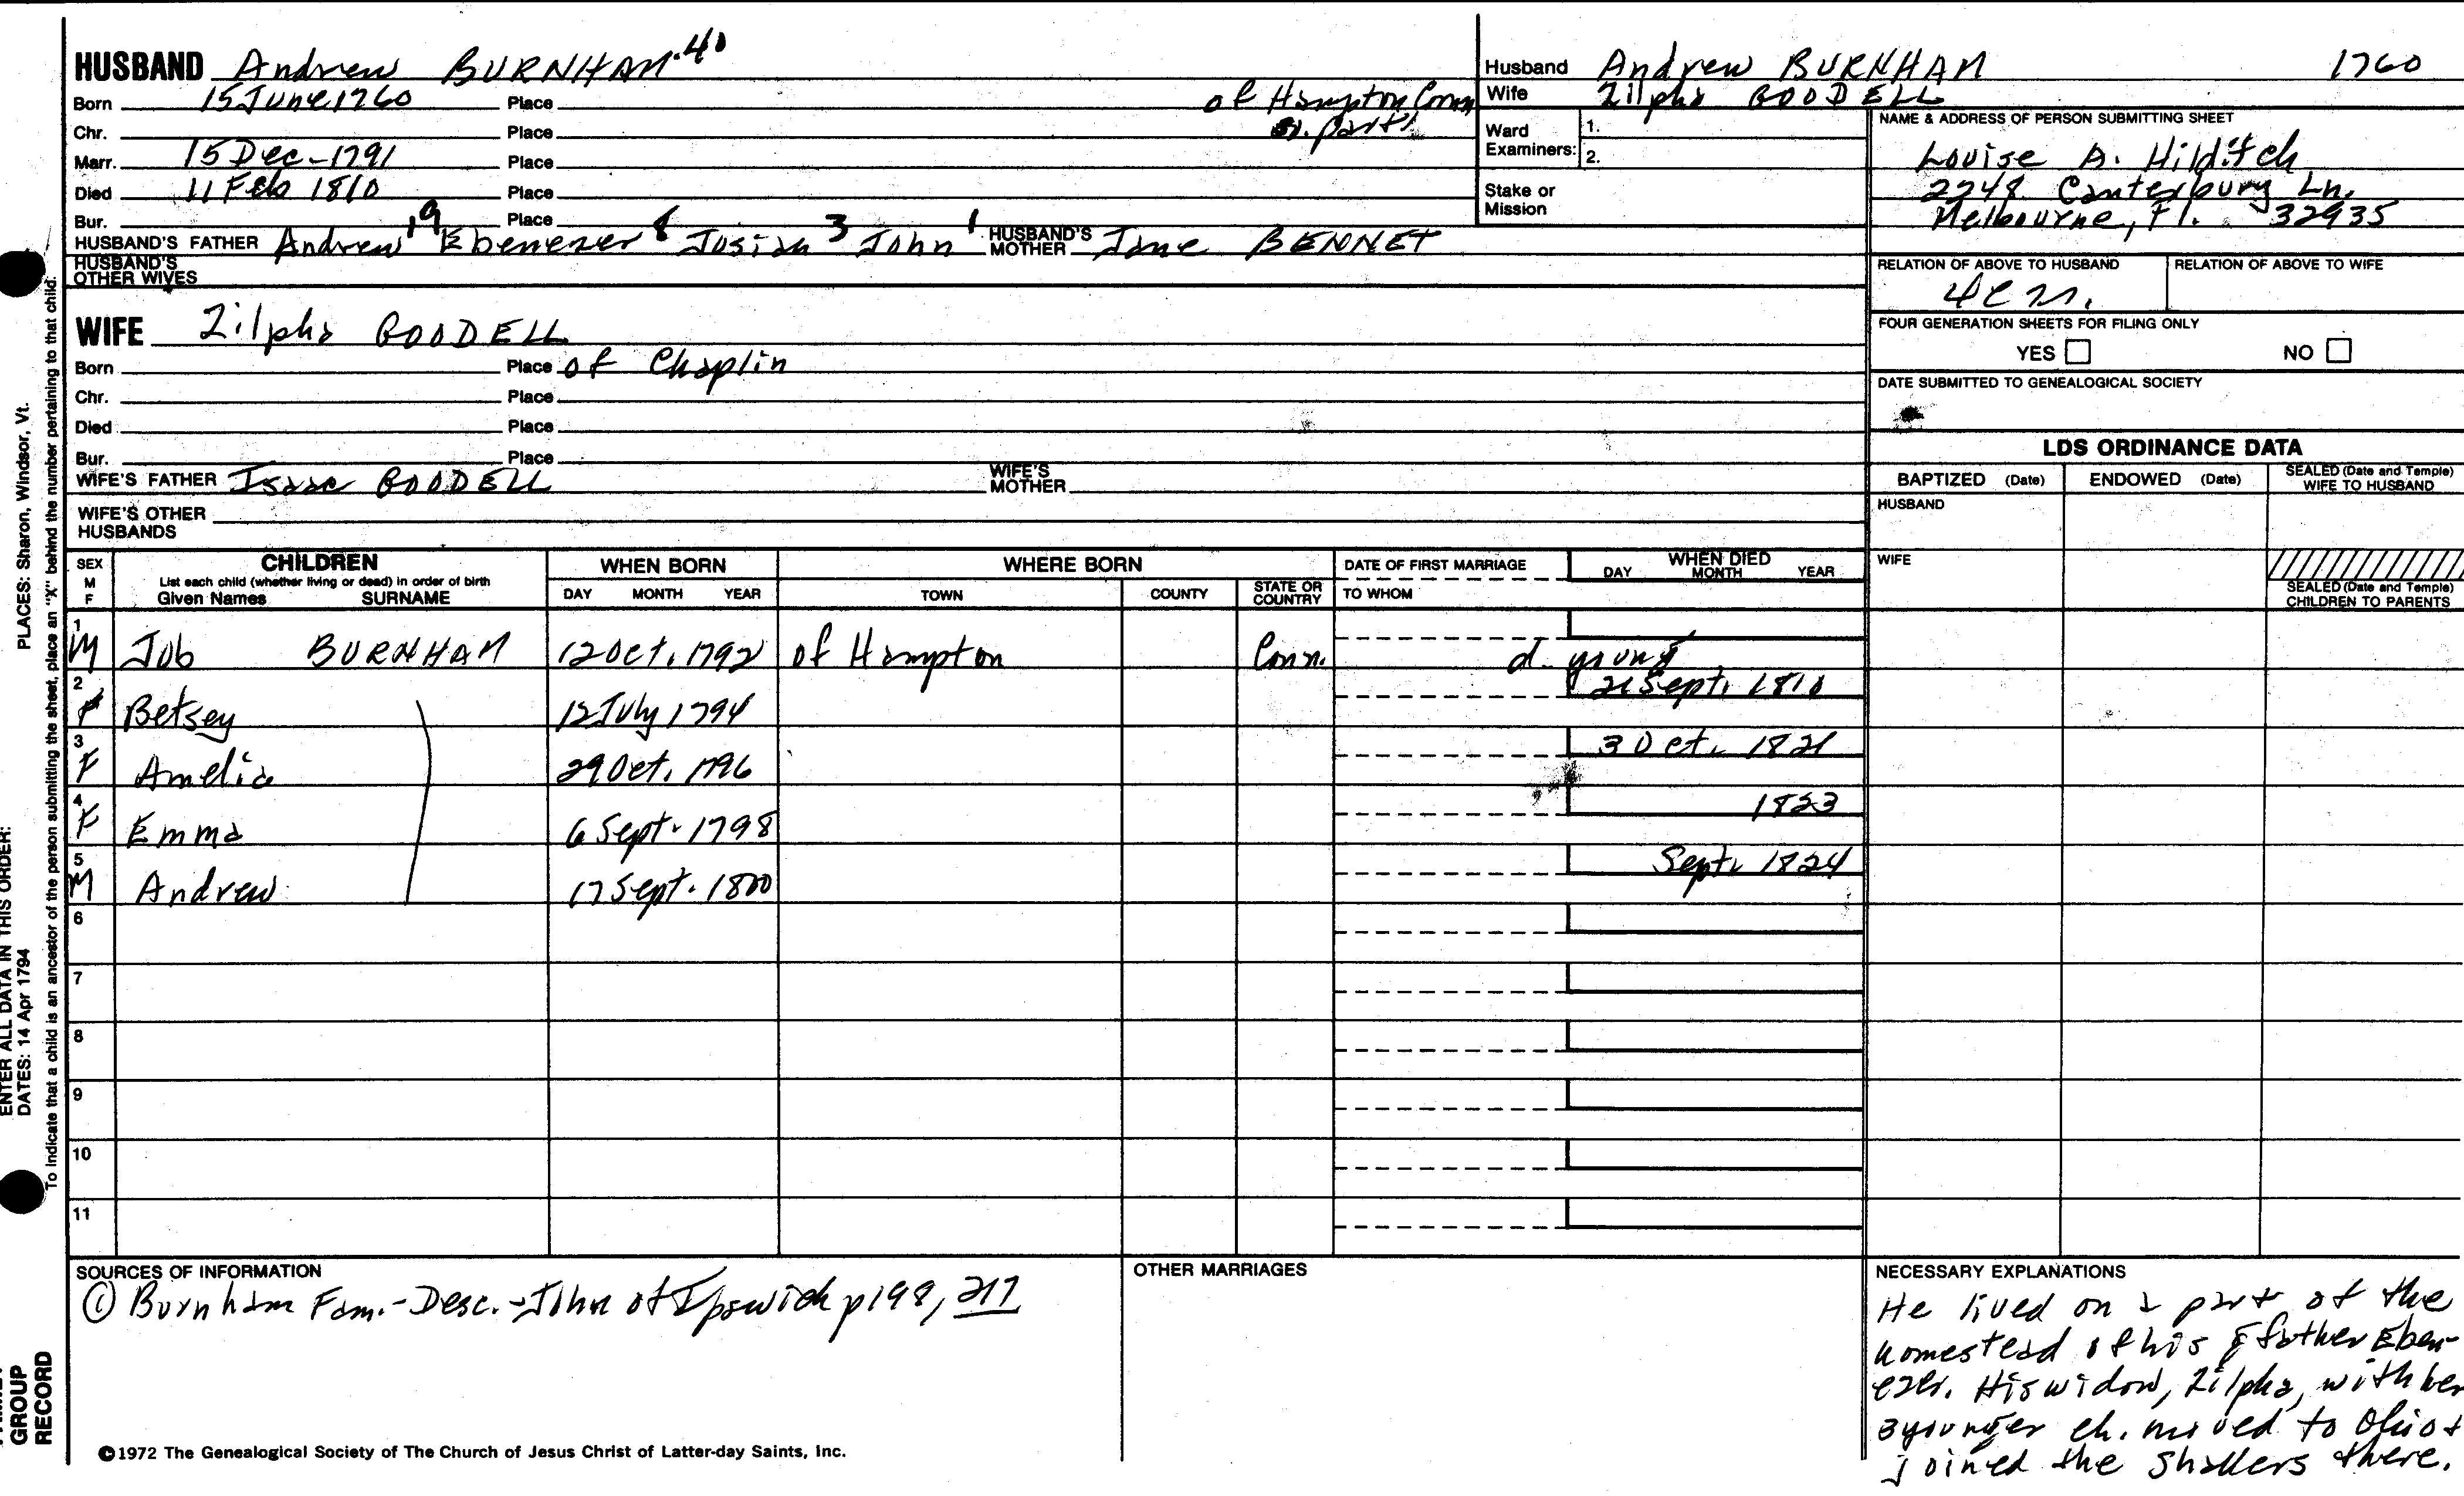 HUSBAND Andrew BURNHAM 40
Born 15 June 1760 Place of Hampton Conn
Chr. Place
Marr. 15 Dec - 1791 Place
Died 11 Feb 1810 Place
Bur. Place
HUSBAND'S FATHER Andrew 19 Ebenezer 8 Josiah 3 John 1 HUSBAND'S MOTHER Jane BENNET
HUSBAND'S OTHER WIVES
WIFE Zilpha GOODELL
Born Place of Chaplin
Chr. Place
Died Place
Bur. Place
WIFE'S FATHER Isaac GOODELL WIFE'S MOTHER
WIFE'S OTHER HUSBANDS
Husband Andrew BURNHAM 1760
Wife Zilpha GOODELL
Ward Examiners: 1.
2.
Stake or Mission
NAME & ADDRESS OF PERSON SUBMITTING SHEET
Louise A. Hilditch
2248 Canterbury Ln.
Melbourne, Fl. 32935
RELATION OF ABOVE TO HUSBAND RELATION OF ABOVE TO WIFE
FOUR GENERATION SHEETS FOR FILING ONLY
YES NO
DATE SUBMITTED TO GENEALOGICAL SOCIETY
LDS ORDINANCE DATA
BAPTIZED (Date) ENDOWED (Date) SEALED (Date and Temple) WIFE TO HUSBAND
HUSBAND
WIFE
SEALED (Date and Temple) CHILDREN TO PARENTS
SEX M F
CHILDREN
List each child (whether living or dead) in order of birth
Given Names SURNAME
WHEN BORN
DAY MONTH YEAR
WHERE BORN
TOWN COUNTY STATE OR COUNTRY
DATE OF FIRST MARRIAGE
TO WHOM
WHEN DIED
DAY MONTH YEAR
1 M Job BURNHAM 12 Oct. 1792 of Hampton Conn. d. young
2 F Betsey 12 July 1794 21 Sept. 1810
3 F Amelia 29 Oct. 1796 3 Oct. 1821
4 F Emma 6 Sept. 1798 1823
5 M Andrew 17 Sept. 1800 Sept. 1824
6
7
8
9
10
11
SOURCES OF INFORMATION
① Burnham Fam. - Desc. - John of Ipswich p 198, 217
OTHER MARRIAGES
NECESSARY EXPLANATIONS
He lived on a part of the
homestead of his gfather Eben-
ezer. His widow, Zilpha, with her
3 younger ch. moved to Ohio +
joined the Shakers there.
©1972 The Genealogical Society of The Church of Jesus Christ of Latter-day Saints, Inc.
PLACES: Sharon, Windsor, Vt.
To indicate that a child is an ancestor of the person submitting the sheet, place an "X" behind the number pertaining to that child.
ENTER ALL DATA IN THIS ORDER:
DATES: 14 Apr 1794
GROUP
RECORD